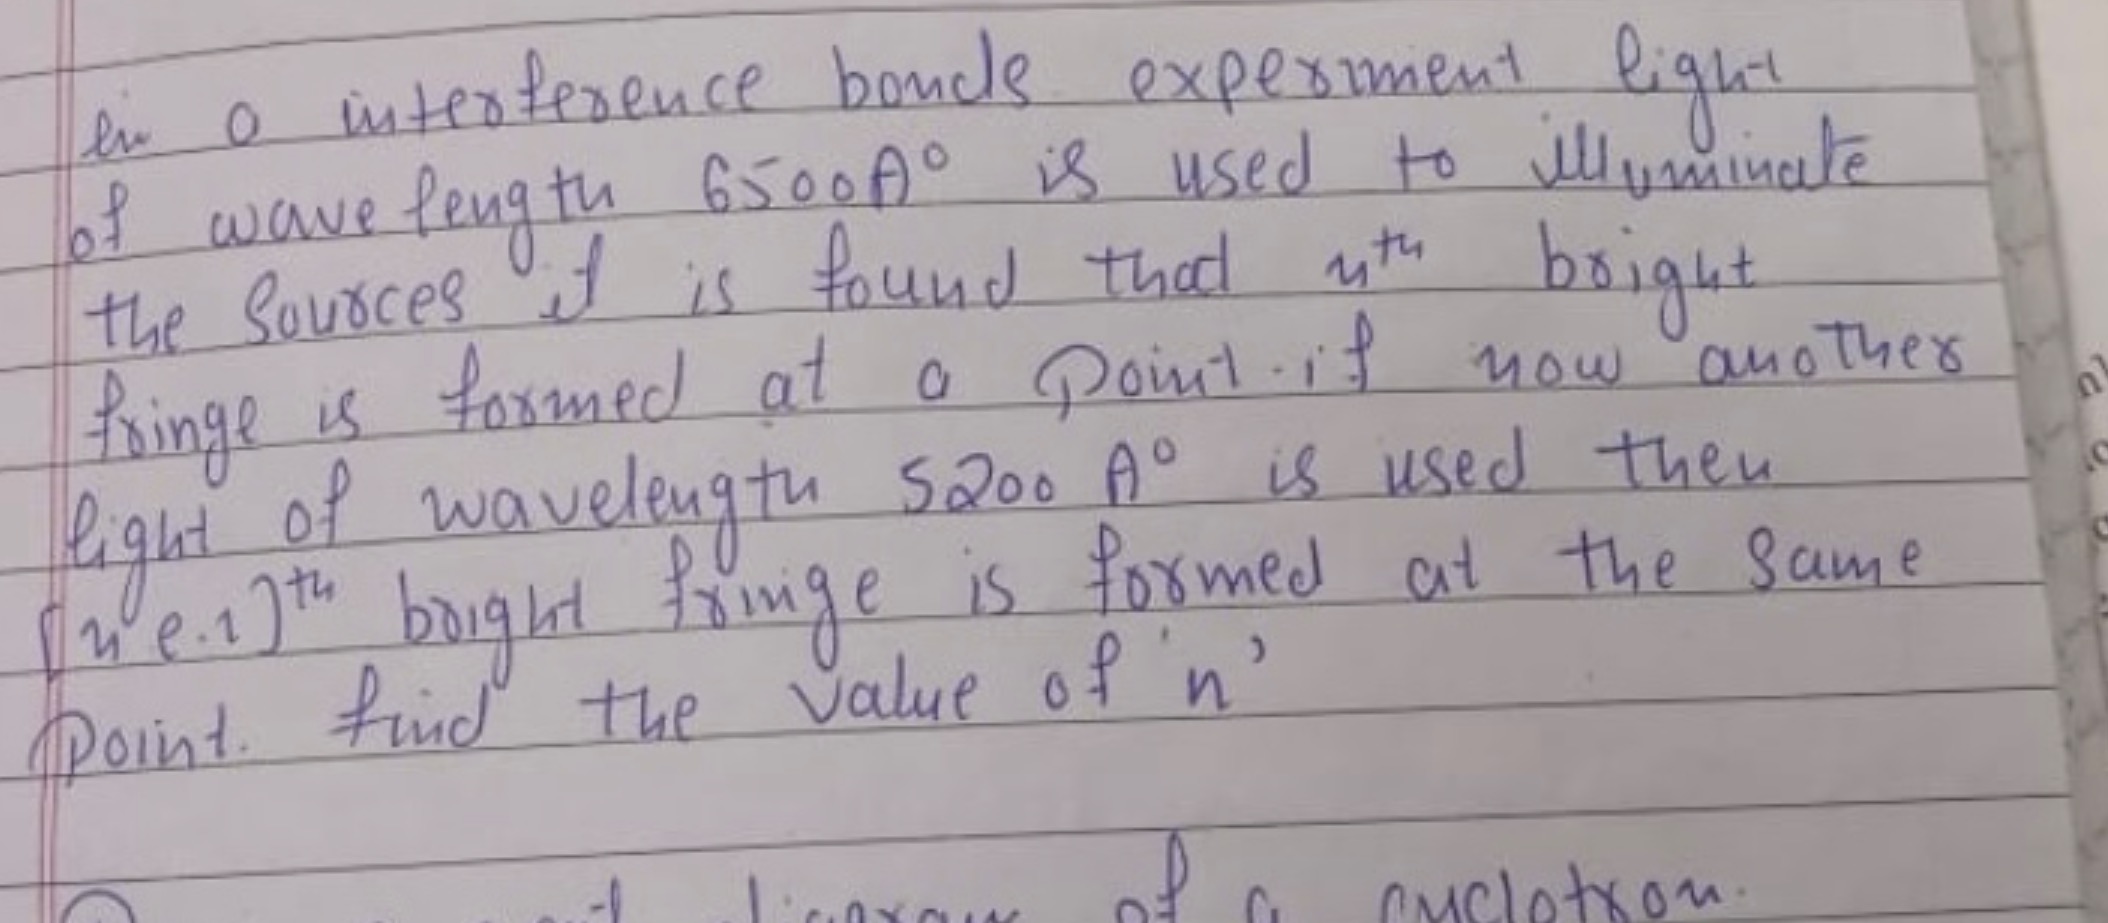 in a interference bands experiment light
of wave length 6500A° is used to illuminate
the Sources it is found that nth bright
fringe is formed at a Point. if now another
light of wavelength 5200 A° is used then
[n e.1]th bright fringe is formed at the Same
Point. find the value of 'n'
diagram of a cyclotron.